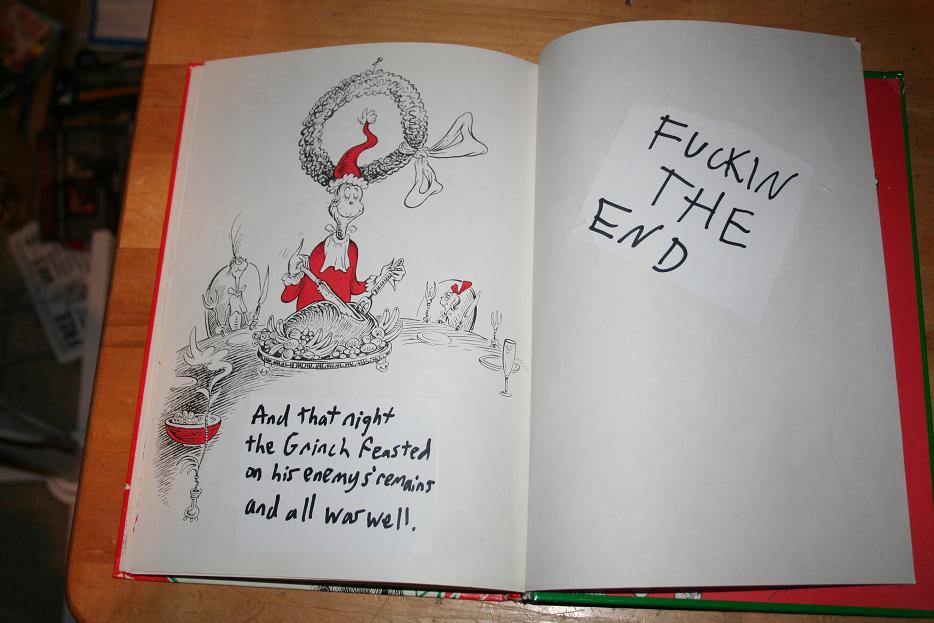 And that night
the Grinch feasted
on his enemys' remains
and all was well.
FUCKIN
THE
END